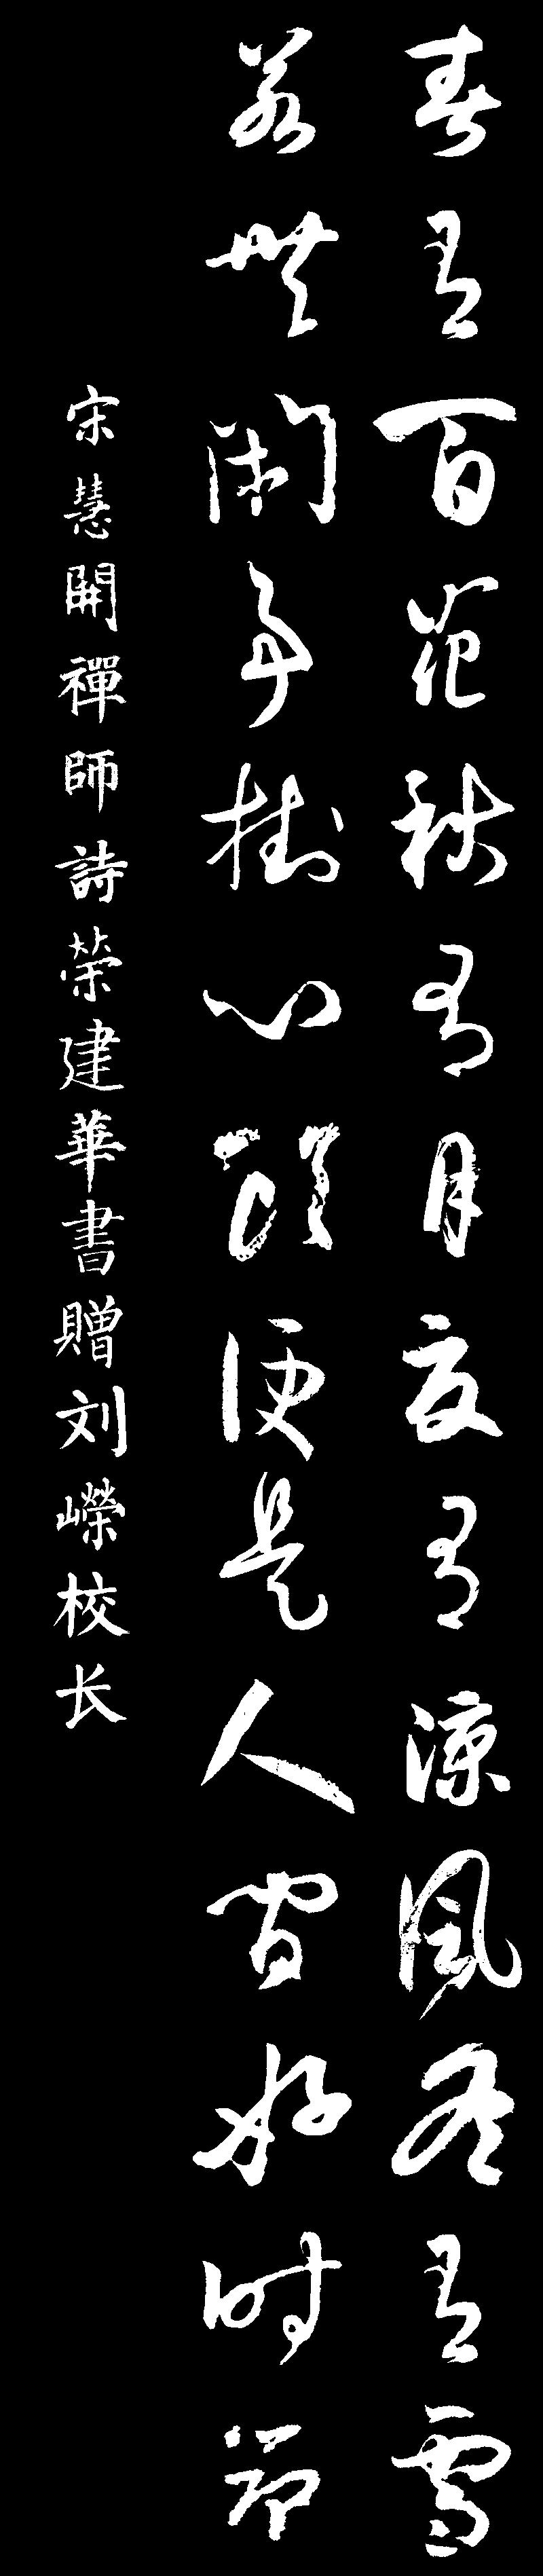 春有百花秋有月夏有涼風冬有雪
若無闲事掛心頭便是人間好时節
宋慧開禪師詩榮建華書贈刘嶸校长